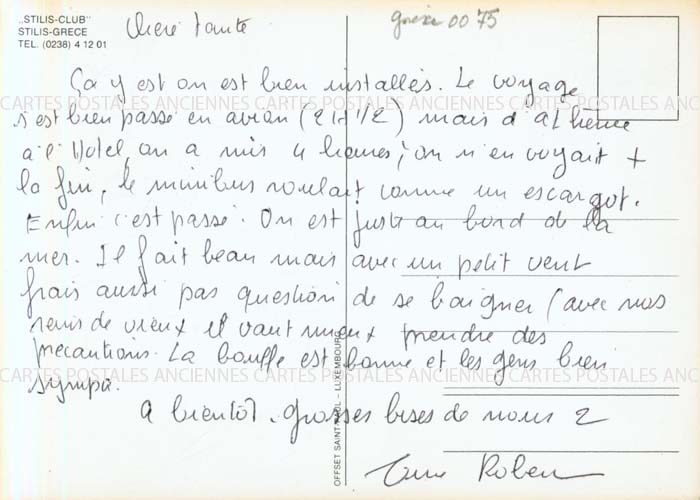 „STILIS-CLUB"
STILIS-GRECE
TEL. (0238) 4 12 01
Chère tante
grèce 00 75
Ça y est on est bien installés. Le voyage
CARTES POSTALES ANCIENNES CARTES POSTALES ANCIENNES CARTES POSTALES ANCIENNES
s'est bien passé en avion (2H 1/2) mais d'athène
à l'Hotel, on a mis 4 heures, on n'en voyait +
la fin, le minibus roulait comme un escargot.
Enfin c'est passé. On est juste au bord de la
mer. Il fait beau mais avec un petit vent
frais aussi pas question de se baigner (avec nos
de vieux il vaut mieux prendre des
precautions. La bouffe est bonne et les gens bien
CARTES POSTALES ANCIENNES CARTES POSTALES ANCIENNES CARTES POSTALES ANCIENNES
sympa.
A bientôt. grosses bises de nous 2
OFFSET SAINT-PAUL – LUXEMBOURG